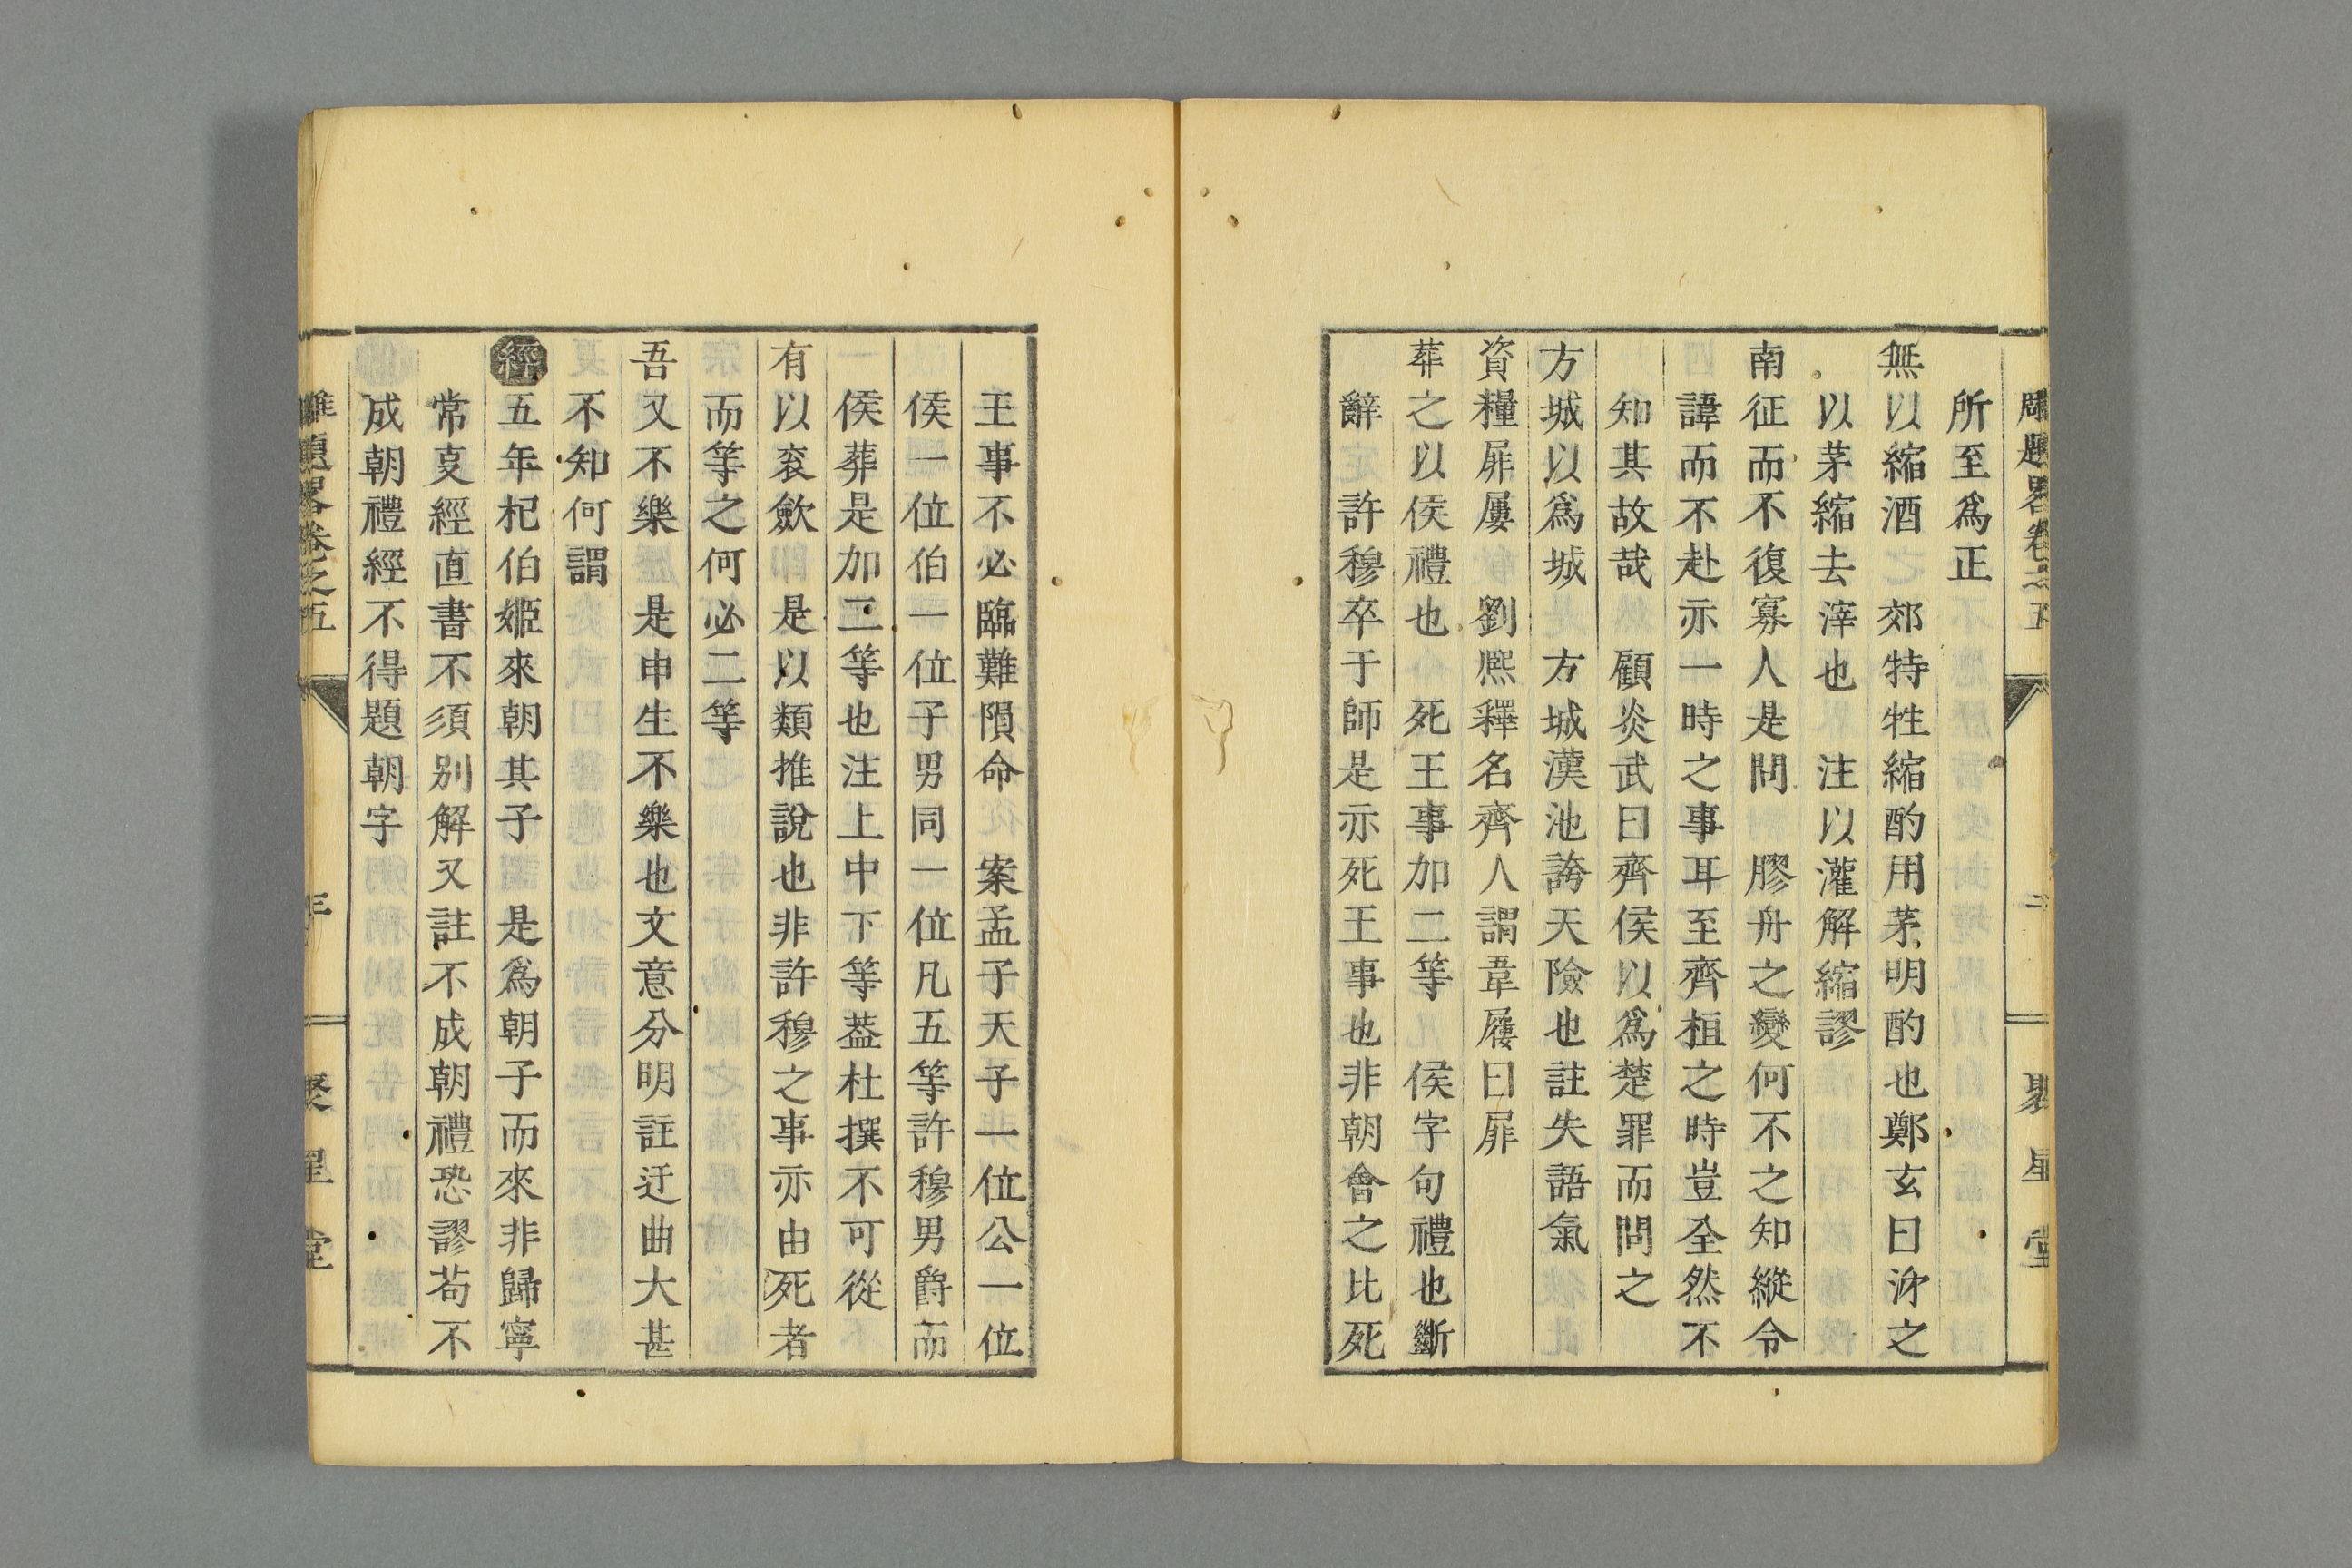 所至爲正
無以縮酒　郊特牲縮酌用茅明酌也鄭玄曰泲之
以茅縮去滓也　注以灌解縮謬
南征而不復寡人是問　膠舟之變何不之知縱令
諱而不赴亦一時之事耳至齊桓之時豈全然不
知其故哉　顧炎武曰齊侯以爲楚罪而問之
方城以爲城　方城漢池誇天險也註失語氣
資糧屝屨　劉熈釋名齊人謂韋屨曰屝
葬之以侯禮也　死王事加二等　侯字句禮也斷
辭　許穆卒于師是亦死王事也非朝會之比死
王事不必臨難隕命　案孟子天子一位公一位
侯一位伯一位子男同一位凡五等許穆男爵而
侯葬是加二等也注上中下等葢杜撰不可從
有以衮斂　是以類推說也非許穆之事亦由死者
而等之何必二等
吾又不樂　是申生不樂也文意分明註迂曲大甚
不知何謂
經五年杞伯姬來朝其子　是爲朝子而來非歸寧
常叓經直書不須别解又註不成朝禮恐謬苟不
成朝禮經不得題朝字
雕題畧卷之五
聚星堂